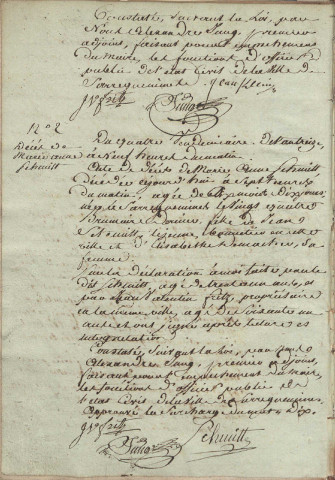 Constaté, suivant la loi, par
Nous Alexandre Jung, premier
adjoint, faisant pour empêchement
du Maire, les fonctions d'officier
public de l'état civil de la ville de
Sarreguemines.
J. V. Fritz Jung
N° 2
Décès de
Marie anne
Schmitt
Du quatre Vendemiaire de l'an treize
à Neuf heures du matin
Acte de Décès de Marie Anne Schmitt
Décédée cejourd'hui à sept heures
du matin, agée de mois dix jours
née à Sarreguemines le vingt quatre
Brumaire dernier, fille de Jean
Schmitt, le jeune, en cette
ville et d'Elisabethe sa
femme.
Sur la déclaration à moi faite par le
dit Schmitt, agé de trente ans, et
par Jean Valentin Fritz, propriétaire
en la même ville, agé de soixante un
ans et ont signé après lecture et
interpretation
Constaté, suivant la loi, par nous
Alexandre Jung, premier adjoint,
faisant pour empêchement du maire,
les fonctions d'officier public de
l'état civil de la ville de Sarreguemines.
Approuvé la surcharge du mot dix.
J. V. Fritz
Jung Schmitt